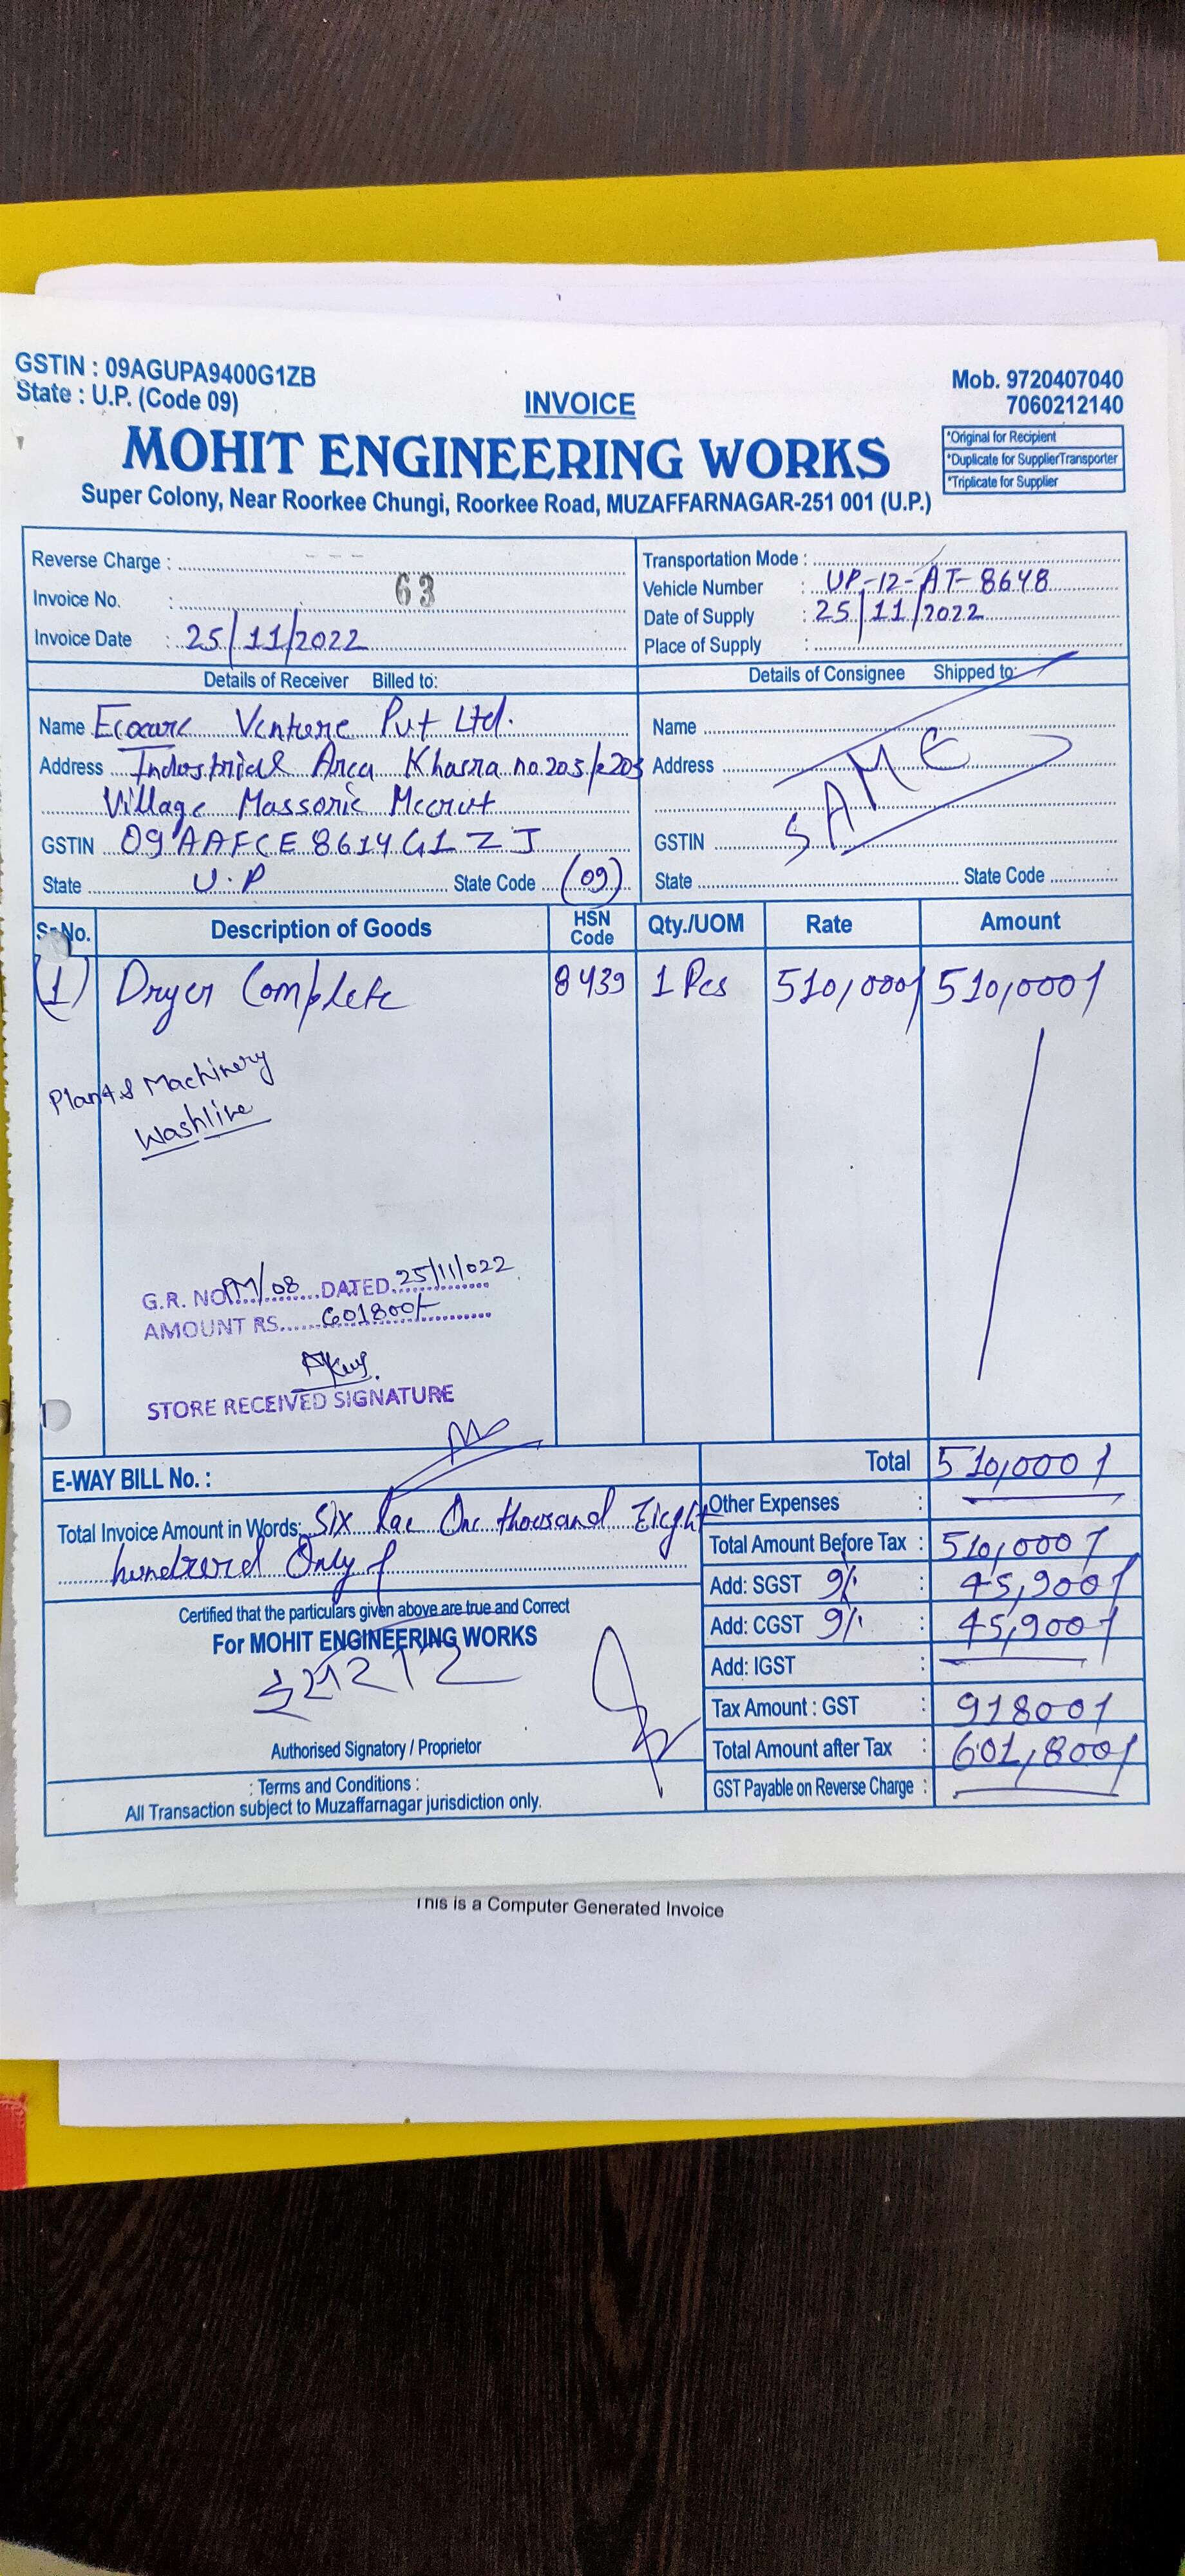 GSTIN : 09AGUPA9400G1ZB
State : U.P. (Code 09)
INVOICE
Mob. 9720407040
7060212140
MOHIT ENGINEERING WORKS
Super Colony, Near Roorkee Chungi, Roorkee Road, MUZAFFARNAGAR-251 001 (U.P.)
*Original for Recipient
*Duplicate for SupplierTransporter
*Triplicate for Supplier
Reverse Charge :
Invoice No. : 63
Invoice Date : 25/11/2022
Transportation Mode :
Vehicle Number : UP-12-AT-8648
Date of Supply : 25/11/2022
Place of Supply :
Details of Receiver Billed to:
Name Ecocare Venture Pvt Ltd.
Address Industrial Area Khasra no. 203/
Village Massorie Meerut
GSTIN 09AAFCE8614G1ZJ
State U.P State Code (09)
Details of Consignee Shipped to:
Name
Address
GSTIN
State State Code
SAME
Sr.No. Description of Goods HSN Code Qty./UOM Rate Amount
(1) Dryer Complete 8439 1 Pcs 510,000/ 510,000/
Plant & Machinery
Washline
G.R. NO. PM/08 DATED. 25/11/022
AMOUNT RS. 601800/-
STORE RECEIVED SIGNATURE
E-WAY BILL No. :
Total Invoice Amount in Words: Six Lac One thousand Eight
hundrerd Only
Certified that the particulars given above are true and Correct
For MOHIT ENGINEERING WORKS
Authorised Signatory / Proprietor
: Terms and Conditions :
All Transaction subject to Muzaffarnagar jurisdiction only.
Total 510,000/
Other Expenses :
Total Amount Before Tax : 510,000/
Add: SGST 9% : 45,900/
Add: CGST 9% : 45,900/
Add: IGST :
Tax Amount : GST : 91800/
Total Amount after Tax : 601,800/
GST Payable on Reverse Charge :
This is a Computer Generated Invoice